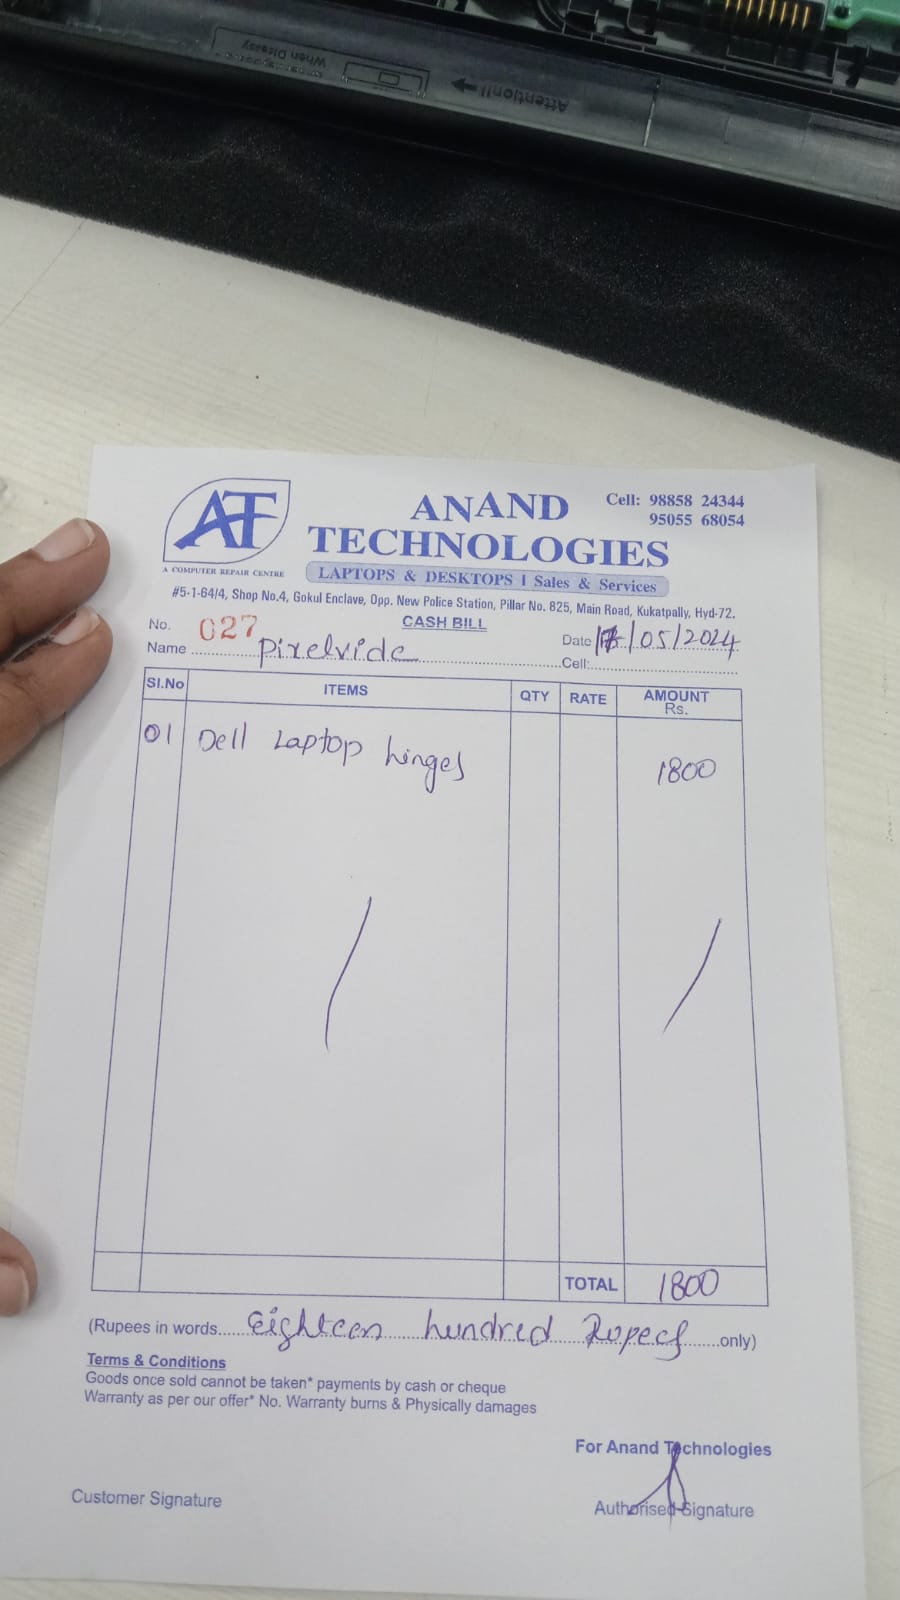 When Disassy
Attention!!
AT
A COMPUTER REPAIR CENTRE
ANAND
TECHNOLOGIES
Cell: 98858 24344
95055 68054
LAPTOPS & DESKTOPS | Sales & Services
#5-1-64/4, Shop No.4, Gokul Enclave, Opp. New Police Station, Pillar No. 825, Main Road, Kukatpally, Hyd-72.
No. 027
CASH BILL
Date /05/2024
Name Pixelvide
Cell:
Sl.No ITEMS QTY RATE AMOUNT Rs.
01 Dell Laptop hinges 1800
TOTAL 1800
(Rupees in words Eighteen hundred Rupees only)
Terms & Conditions
Goods once sold cannot be taken* payments by cash or cheque
Warranty as per our offer* No. Warranty burns & Physically damages
For Anand Technologies
Customer Signature
Authorised Signature